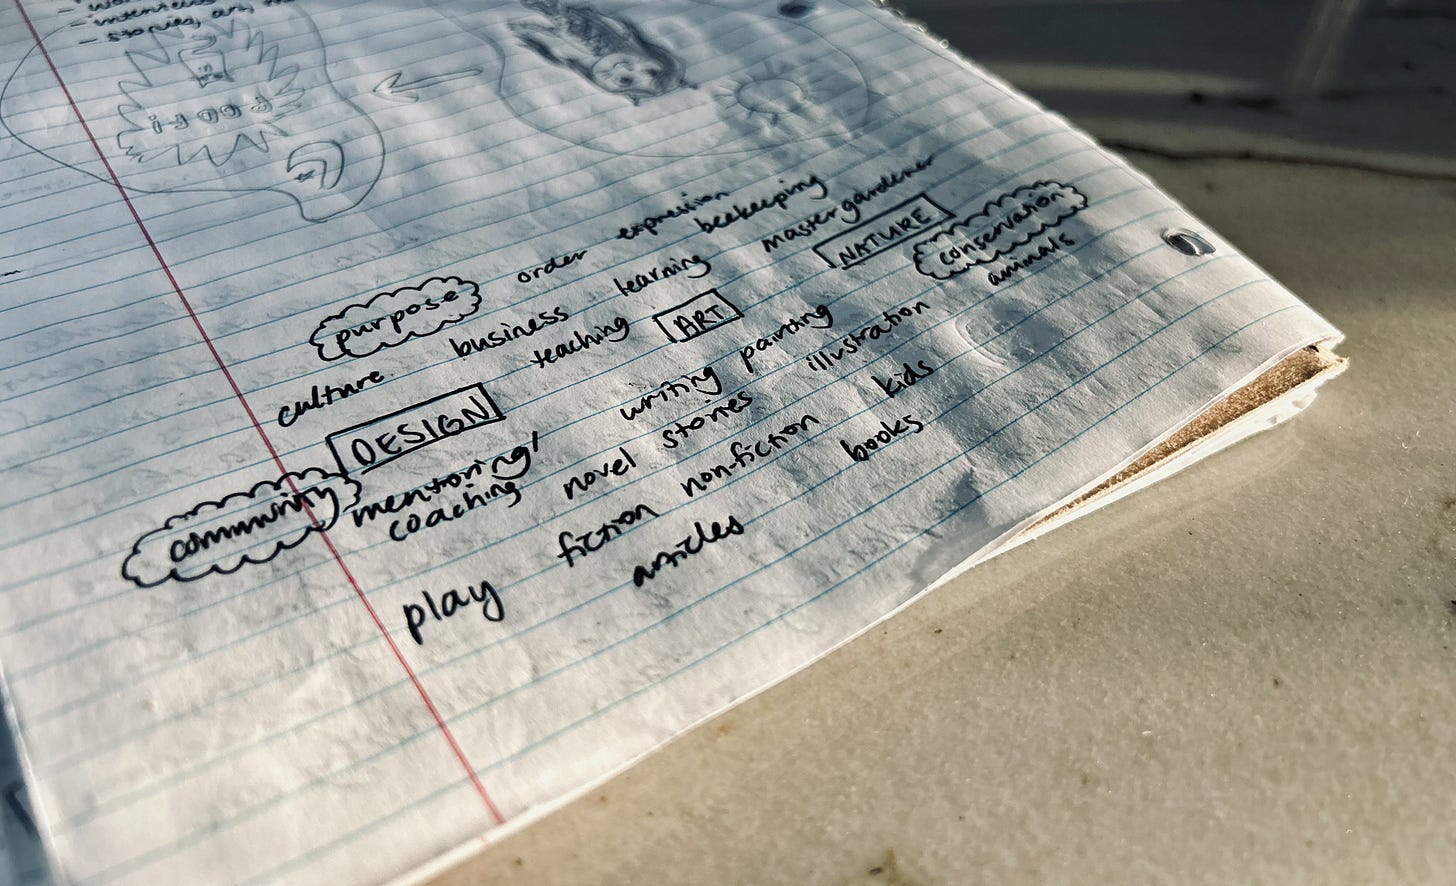 - stories, art,
purpose order expression beekeeping
culture business learning master gardener
DESIGN teaching ART NATURE conservation
community mentoring/ writing painting animals
coaching novel stories illustration
fiction non-fiction kids
play articles books